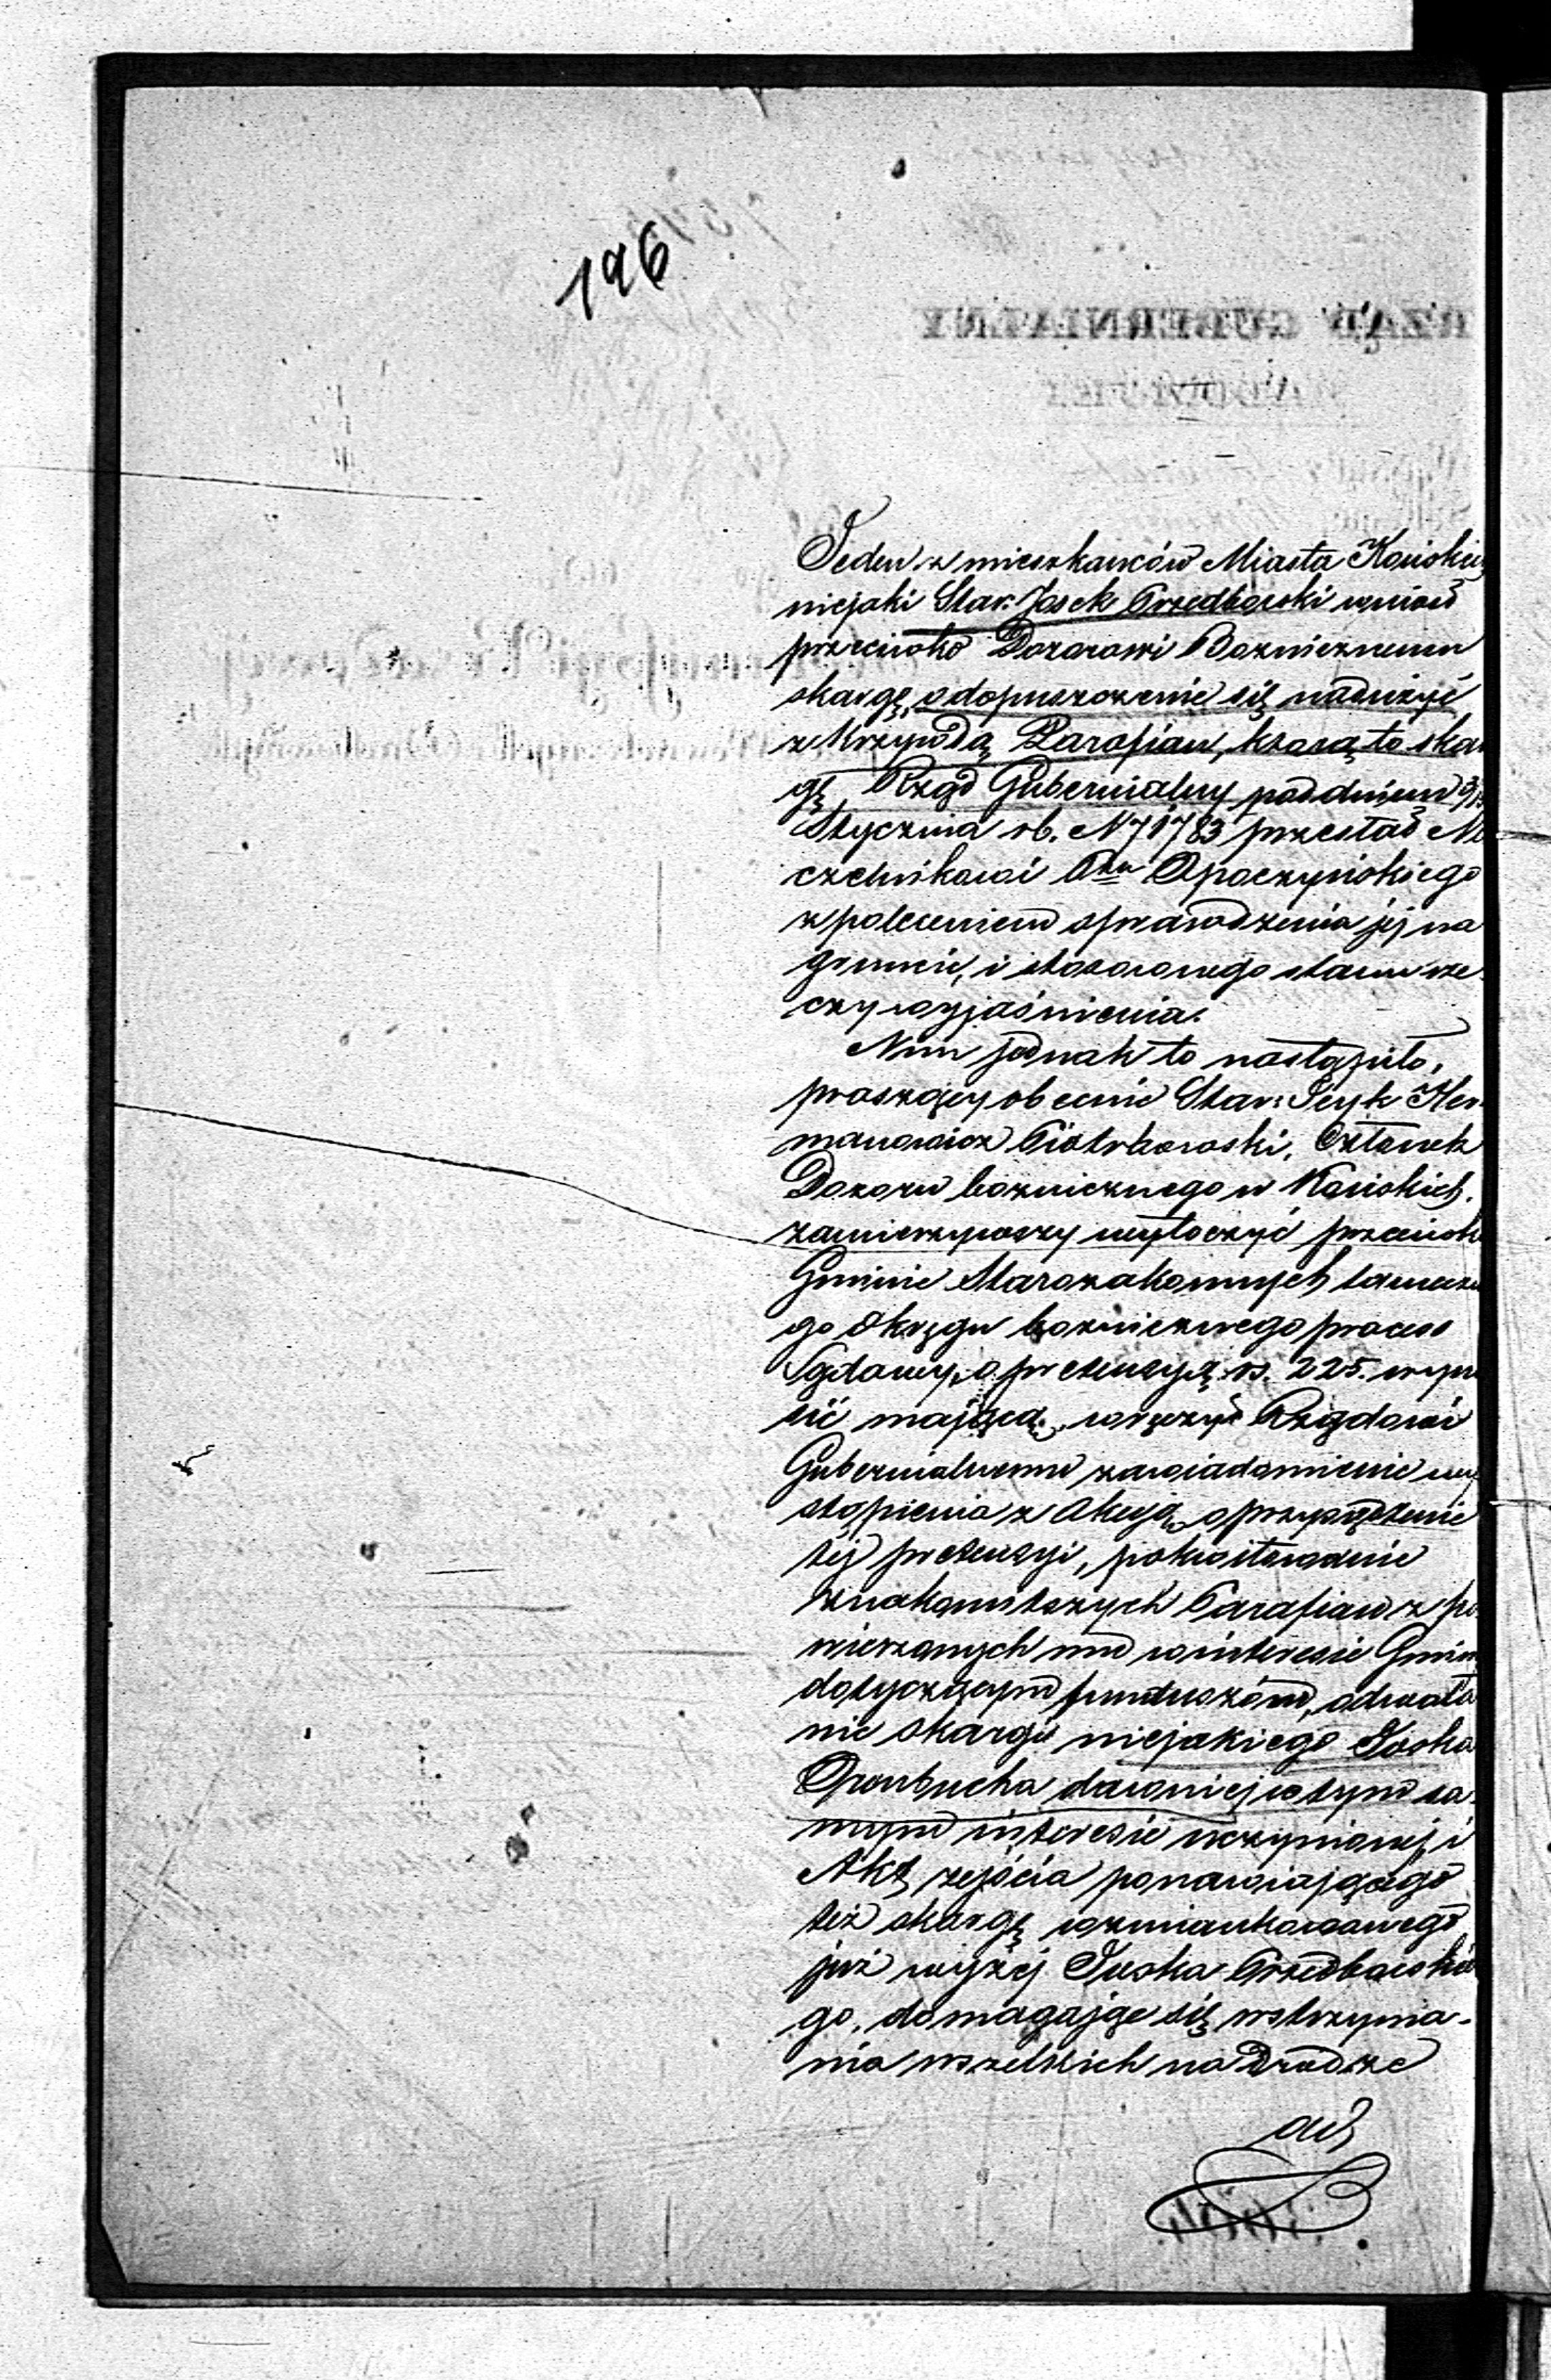 196
Jeden z mieszkańców Miasta Końskich
niejaki Star: Josek Przedborski wniósł
przeciwko Dozorowi Bożnicznemu
skargę, o dopuszczenie się nadużyć
z krzywdą Parafian, którą to skar
gę, Rząd Gubernialny pod dniem
Stycznia rb. N 71783 przesłał Na
czelnikowi Ptu Opoczyńskiego
z poleceniem sprawdzenia jej na
gruncie, i stosownego stanu rze
czy wyjaśnienia.
Nim jednak to nastąpiło,
proszący obecnie Star: Icyk Her
manowicz Piotrkowski, Członek
Dozoru bożnicznego w Końskich,
zamierzywszy wytoczyć przeciwk
Gminie Starozakonnych tamecz
go Okręgu bożniczego process
Sądowy, o pretensyą rs. 225. wyno
sić mającą, wręczył Rządowi
Gubernialnemu zawiadomienie wy
stąpienia z Akcyą, o przysądzenie
tej pretensyi, pokwitowanie
znakomitszych Parafian z po
wierzonych mu w interesie Gmin
dotyczącym funduszów, odwoła
nie skargi niejakiego Joska
dawniej w tym sa
mym interesie uczynionej, i
Akt zejścia ponawiającego
też skargę wzmiankowanego
już wyżej Joska Przedborskie
go, domagając się wstrzyma-
nia wszelkich na drodze